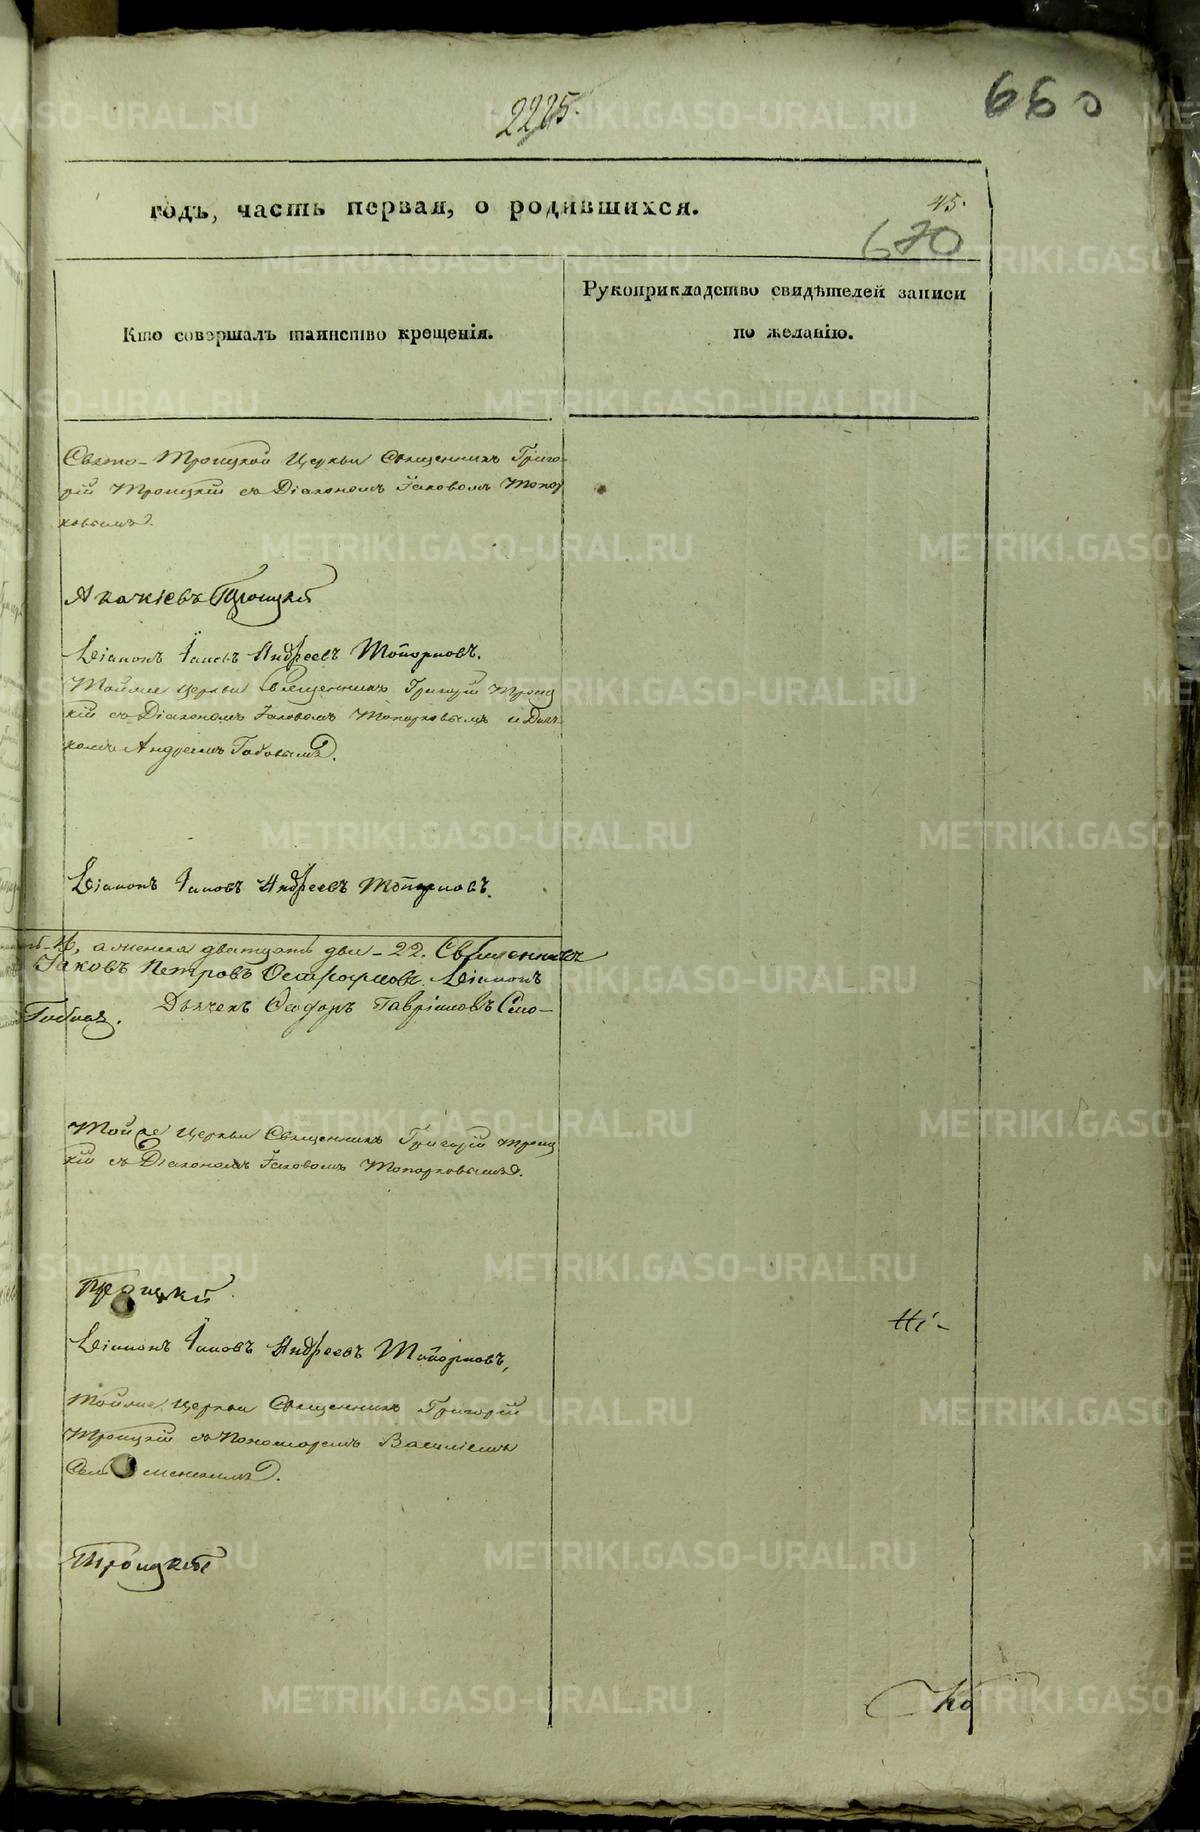 2225.
660
годъ, часть первая, о родившихся.
45.
670
Кто совершалъ таинство крещенія.
Рукоприкладство свидѣтелей записи
по желанію.
Свято-Троицкой Церкви Священникъ Григо-
рій Троицкій съ Діакономъ Іаковомъ Топор
ковымъ.
Троицкій
Діаконъ Іаковъ Андреевъ Топорковъ.
Тойже Церкви Священникъ Григорій Троиц
кій съ Діакономъ Іаковомъ Топорковымъ и Дьяч-
комъ Андреемъ
Діаконъ Іаковъ Андреевъ Топорковъ.
а женска дватцать два - 22. Священникъ
Іаковъ Петровъ Діаконъ
Дьячекъ Ѳеодоръ Гавриловъ
Тойже Церкви Священникъ Григорій Троиц
кій съ Діакономъ Іаковомъ Топорковымъ.
Троицкій
Діаконъ Іаковъ Андреевъ Топорковъ,
Тойже Церкви Священникъ Григорій
Троицкій съ Пономаремъ Василіемъ
Троицкій
METRIKI.GASO-URAL.RU